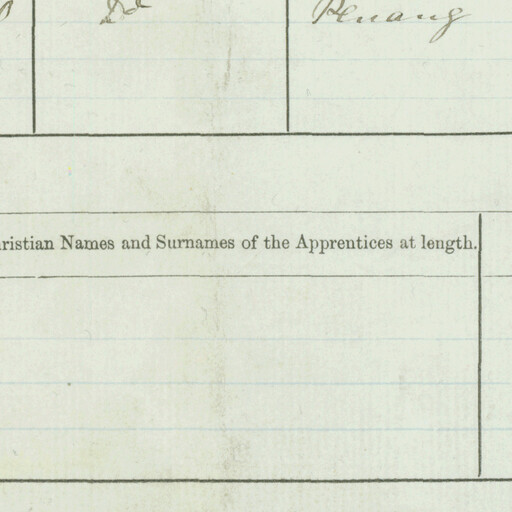 Do Penang
ristian Names and Surnames of the Apprentices at length.